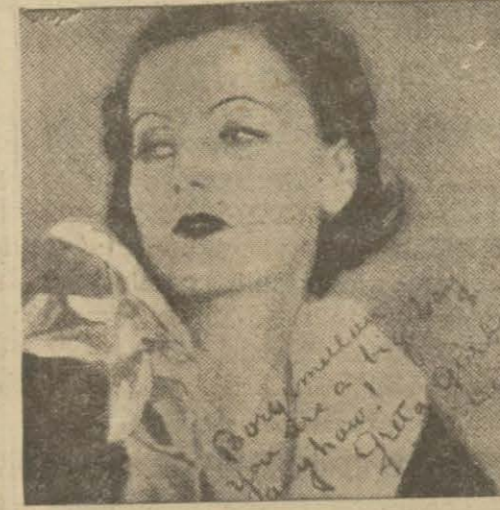 Borgmellar
you are a big boy
anyhow!
Greta Garbo